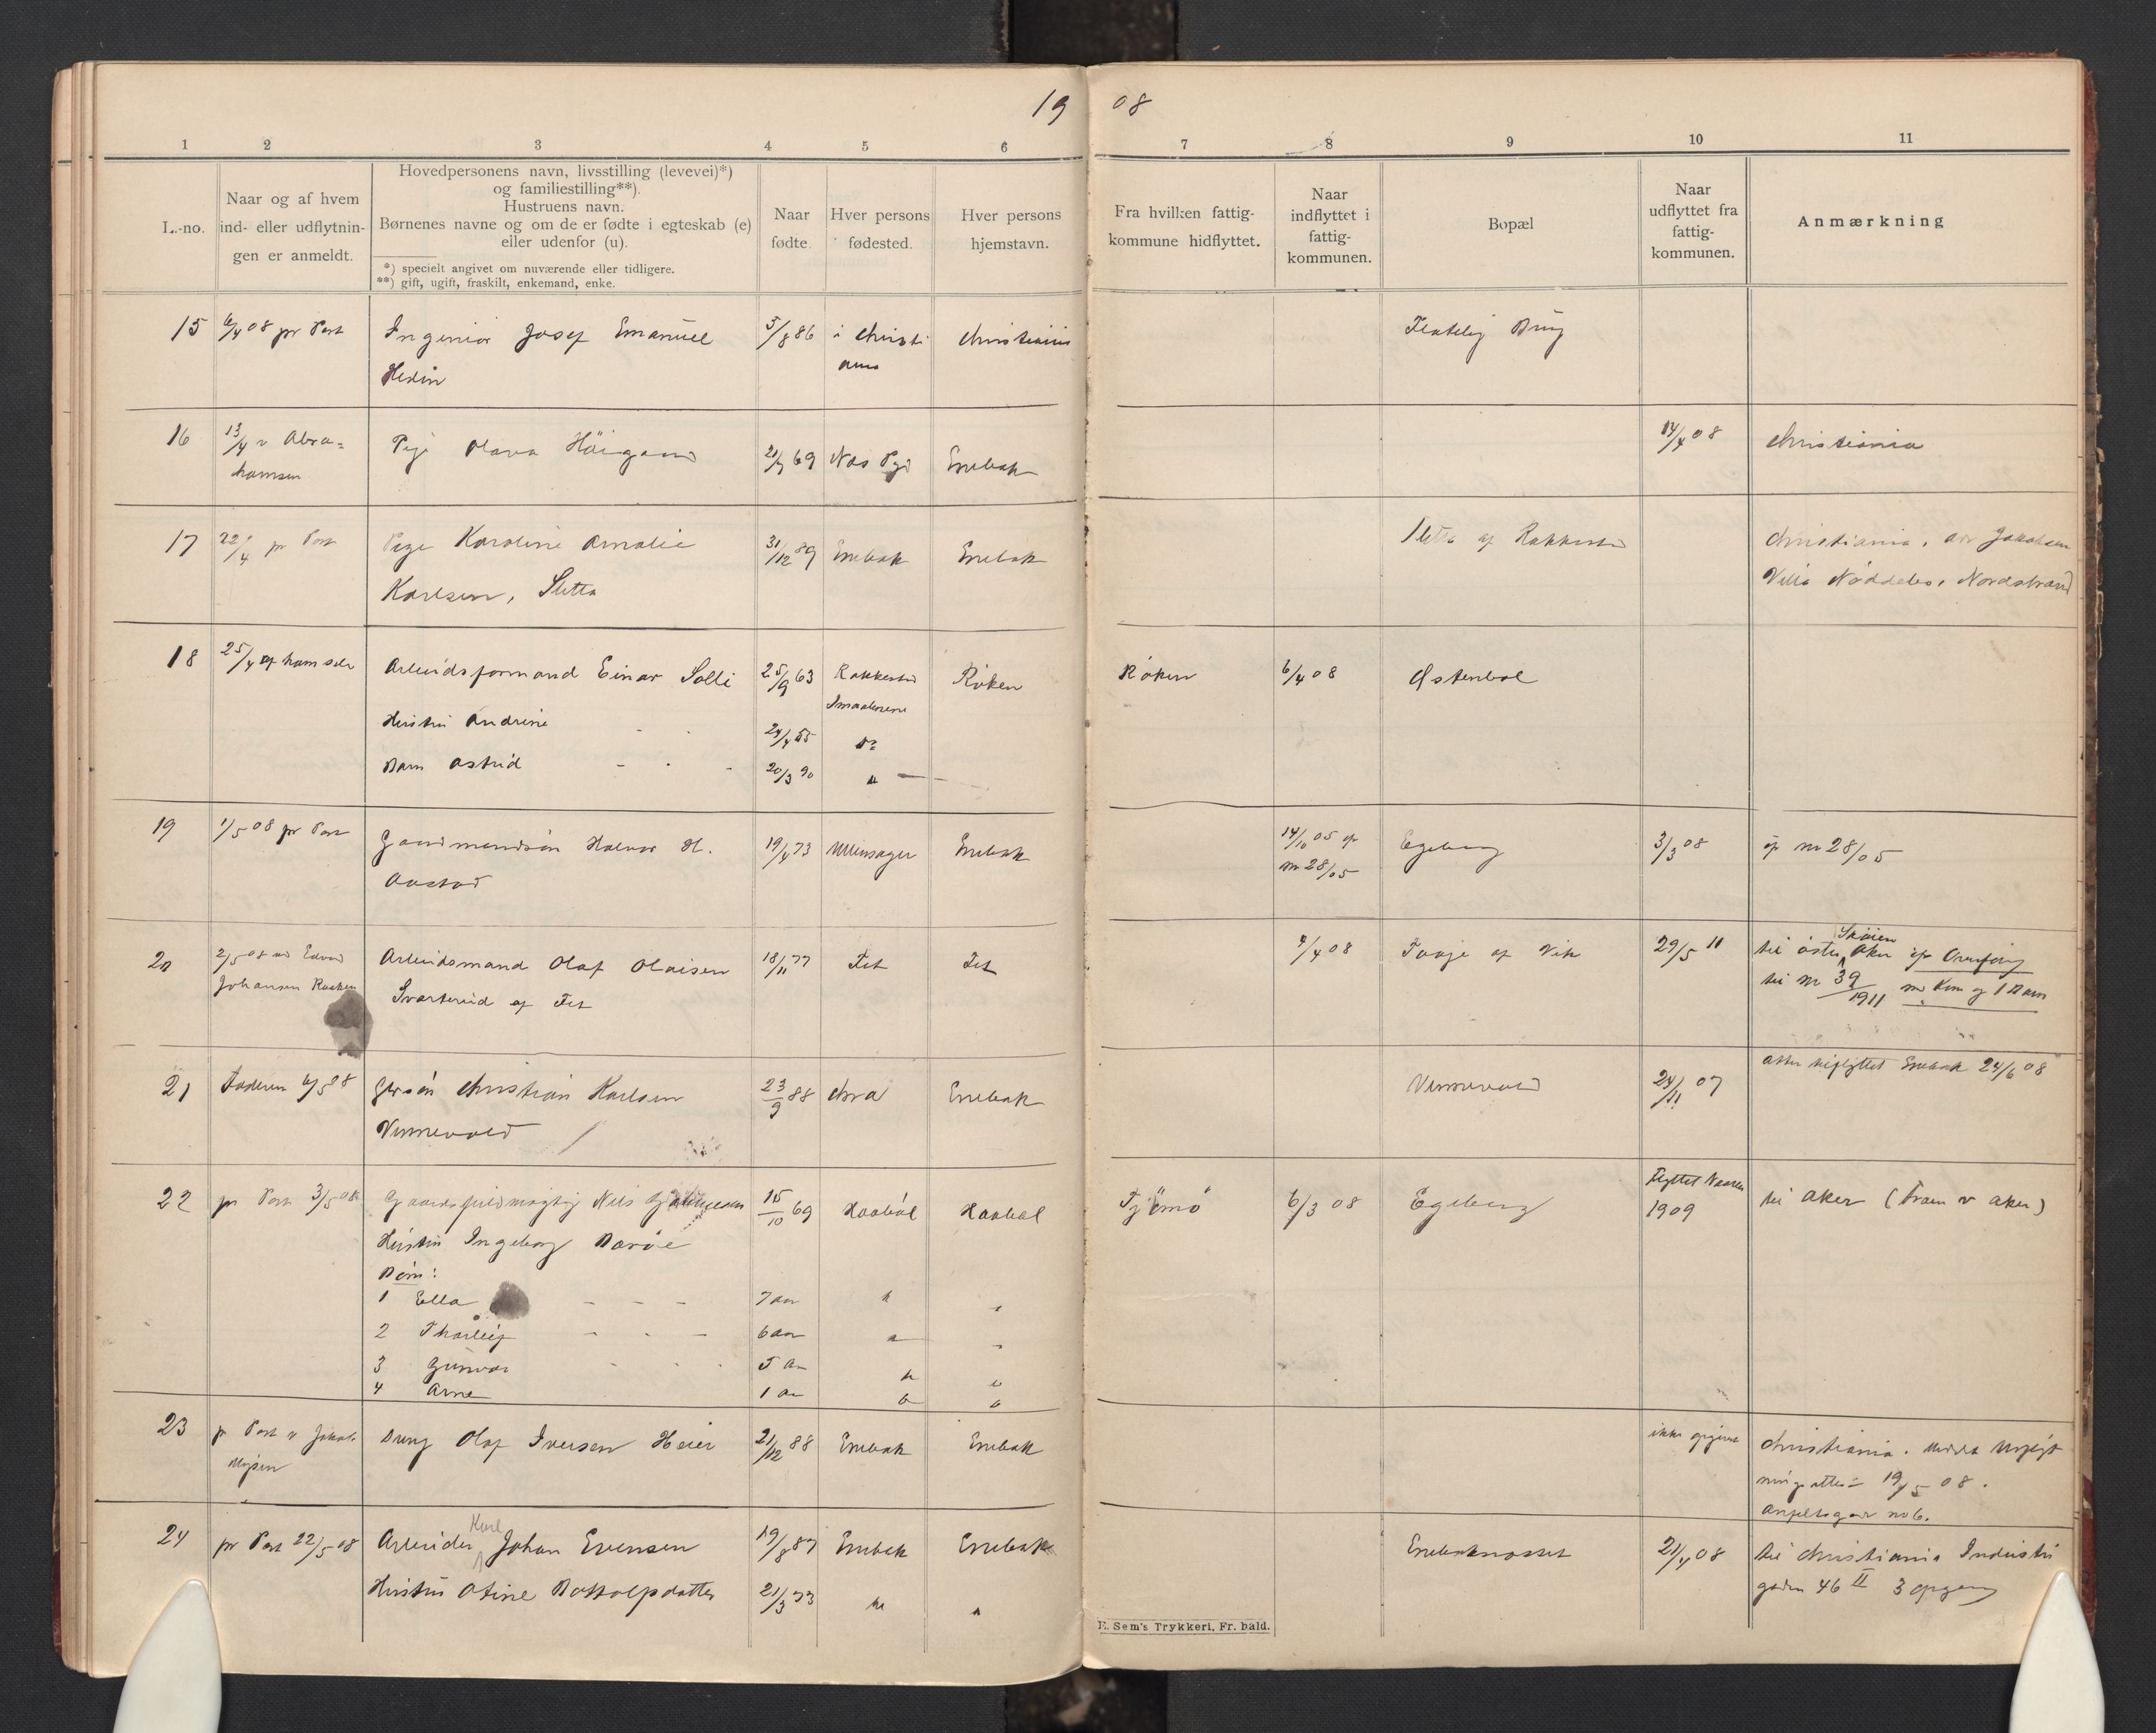 19 08
1 2 3 4 5 6 7 8 9 10 11
L.-no.
Naar og af hvem
ind- eller udflytnin-
gen er anmeldt.
Hovedpersonens navn, livsstilling (levevei)*)
og familiestilling**).
Hustruens navn.
Børnenes navne og om de er fødte i egteskab (e)
eller udenfor (u).
*) specielt angivet om nuværende eller tidligere.
**) gift, ugift, fraskilt, enkemand, enke.
Naar
fødte.
Hver persons
fødested.
Hver persons
hjemstavn.
Fra hvilken fattig-
kommune hidflyttet.
Naar
indflyttet i
fattig-
kommunen.
Bopæl
Naar
udflyttet fra
fattig-
kommunen.
Anmærkning
15 6/4 08 pr Post Ingeniør Josef Emanuel 5/8 86 i Christi Christiania Brug
Hedin ania
16 13/4 v Abra= Pige Olava 21/7 69 Nes Enebak 14/4 08 Christiania
hamsen
17 22/4 pr Post Pige Karoline Amalie 31/12 89 Enebak Enebak Sletta af Rakkestad Christiania, Jakobsen
Karlsen, Sletta Villa Nordstrand
18 25/4 af ham selv Arbeidsformand Einar Solli 25/9 63 Rakkestad Røken Røken 6/4 08 Østenbøl
Smaalenene
Hustru Andrine 24/4 55 Do
Barn Astrid 20/3 90 "
19 1/5 08 pr Post Gaardmandsøn Halvor H. 19/4 73 Ullensager Enebak 14/10 05 cfr Egeberg 3/3 08 cfr nr 28/05
Aastad nr 28/05
20 2/5 08 ved Edvard Arbeidsmand Olaf Olaisen 18/11 77 Fet Fet 4/4 08 Tovje af Vik 29/5 11 til østre Skøien Aker cfr
Johansen Svarterud af Fet til nr 39/1911 m Kone og 1 Barn
21 Faderen 6/5 08 Christian Karlsen 23/9 88 Chra Enebak Vinnevold 24/11 07 atter tilflyttet Enebak 24/6 08
Vinnevold
22 pr Post 3/5 08 Gaardsfuldmægtig Nils 15/10 69 Haabøl Haabøl Tjømø 6/3 08 Egeberg Flyttet Vaaren til Aker (Fram v Aker)
1909
Hustru Ingeborg
Børn:
1 Ella 7 aar " "
2 Thorleif 6 aar " "
3 Gunvor 5 aar " "
4 Arne 1 aar " "
23 pr Post v Jakob Dreng Olaf Iversen Heier 21/12 88 Enebak Enebak ikke opgivet Christiania.
Mysen 19/5 08.
no 6.
24 pr Post 22/5 08 Arbeider Karl Johan Evensen 19/8 87 Enebak Enebak Enebaknesset 21/4 08 til Christiania Industri
Hustru Otine Bottolfsdatter 21/3 73 " " gaden 46 II 3 opgang
E. Sem's Trykkeri, Fr. hald.